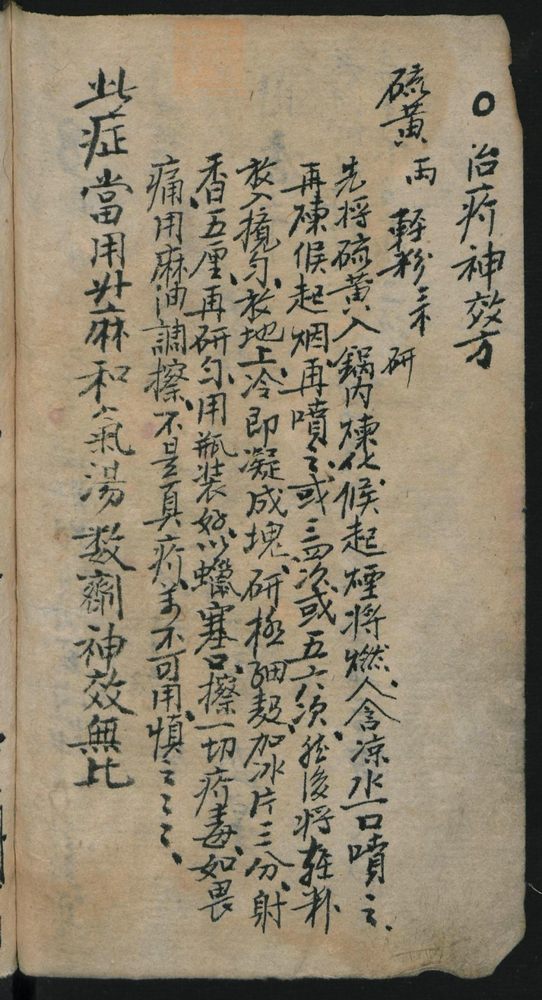 ○治疔神效方
硫黄一両 輕粉三不 研
先将硫黄入鍋内煉化候起煙将燃人含凉水一口噴之、
再煉候起烟再噴之或三四次或五六次、然後将輕粉
放入搅匀、放地上冷即凝成塊、研極細麪、加冰片三分、射
香五厘、再研匀、用瓶装好以蠟塞口、擦一切疔毒、如畏
痛用麻油調擦、不是真疔萬不可用慎之之之、
此症當用升麻和氣湯数劑神效無比